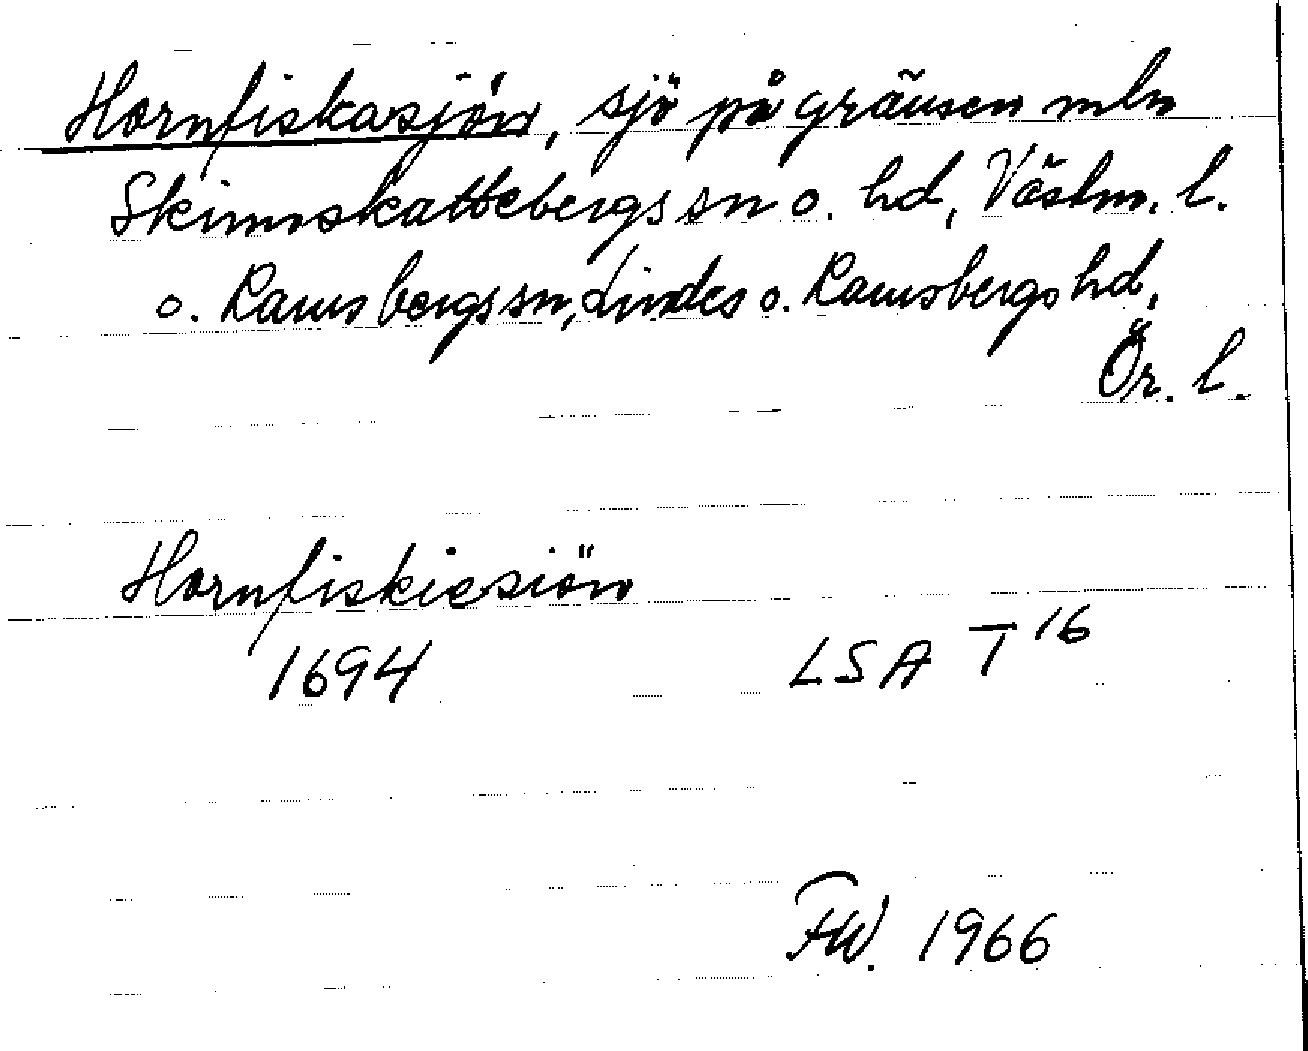 Hornfiskasjön, sjö på gränsen mln
Skinnskattebergs sn o. hd, Västm. l.
o. Ramsbergs sn, Lindes o. Ramsbergs hd,
Ör. l.
Hornfiskiesiön
1694 LSA T 16
FW. 1966